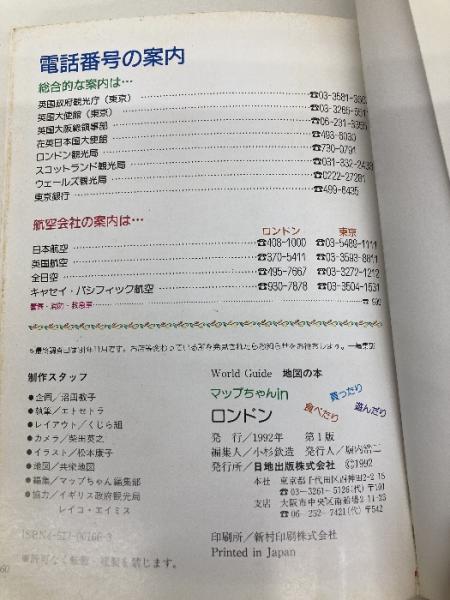 電話番号の案内
総合的な案内は…
英国政府観光庁（東京） ☎03-3581-
英国大使館（東京） ☎03-3265-
英国大阪総領事部 ☎06-231-
在英日本国大使館 ☎493-6030
ロンドン観光局 ☎730-0791
スコットランド観光局 ☎031-332-2433
ウェールズ観光局 ☎0222-27281
東京銀行 ☎499-6435
航空会社の案内は…
ロンドン 東京
日本航空 ☎408-1000 ☎03-5489-1111
英国航空 ☎370-5411 ☎03-3593-8811
全日空 ☎495-7667 ☎03-3272-1212
キャセイ・パシフィック航空 ☎930-7878 ☎03-3504-1531
警察・消防・救急車 ☎
制作スタッフ
●企画／沼田教子
●執筆／エトセトラ
●レイアウト／くじら組
●カメラ／柴田英之
●イラスト／松本康子
●地図／共栄地図
●編集／マップちゃん編集部
●協力／イギリス政府観光局
レイコ・エイミス
ISBN4-527-00166-3
●許可なく転載・複製を禁じます。
60
World Guide 地図の本
マップちゃんin
ロンドン
買ったり
食べたり
遊んだり
発 行／1992年 第1版
編集人／小杉欽造 発行人／堀内浩二
発行所／日地出版株式会社 ©1992
本社 東京都千代田区西神田2-2-15
☎03-3261-5126(代) 〒101
支店 大阪市中央区南船場2-11-23
☎06-252-7421(代) 〒542
印刷所／新村印刷株式会社
Printed in Japan